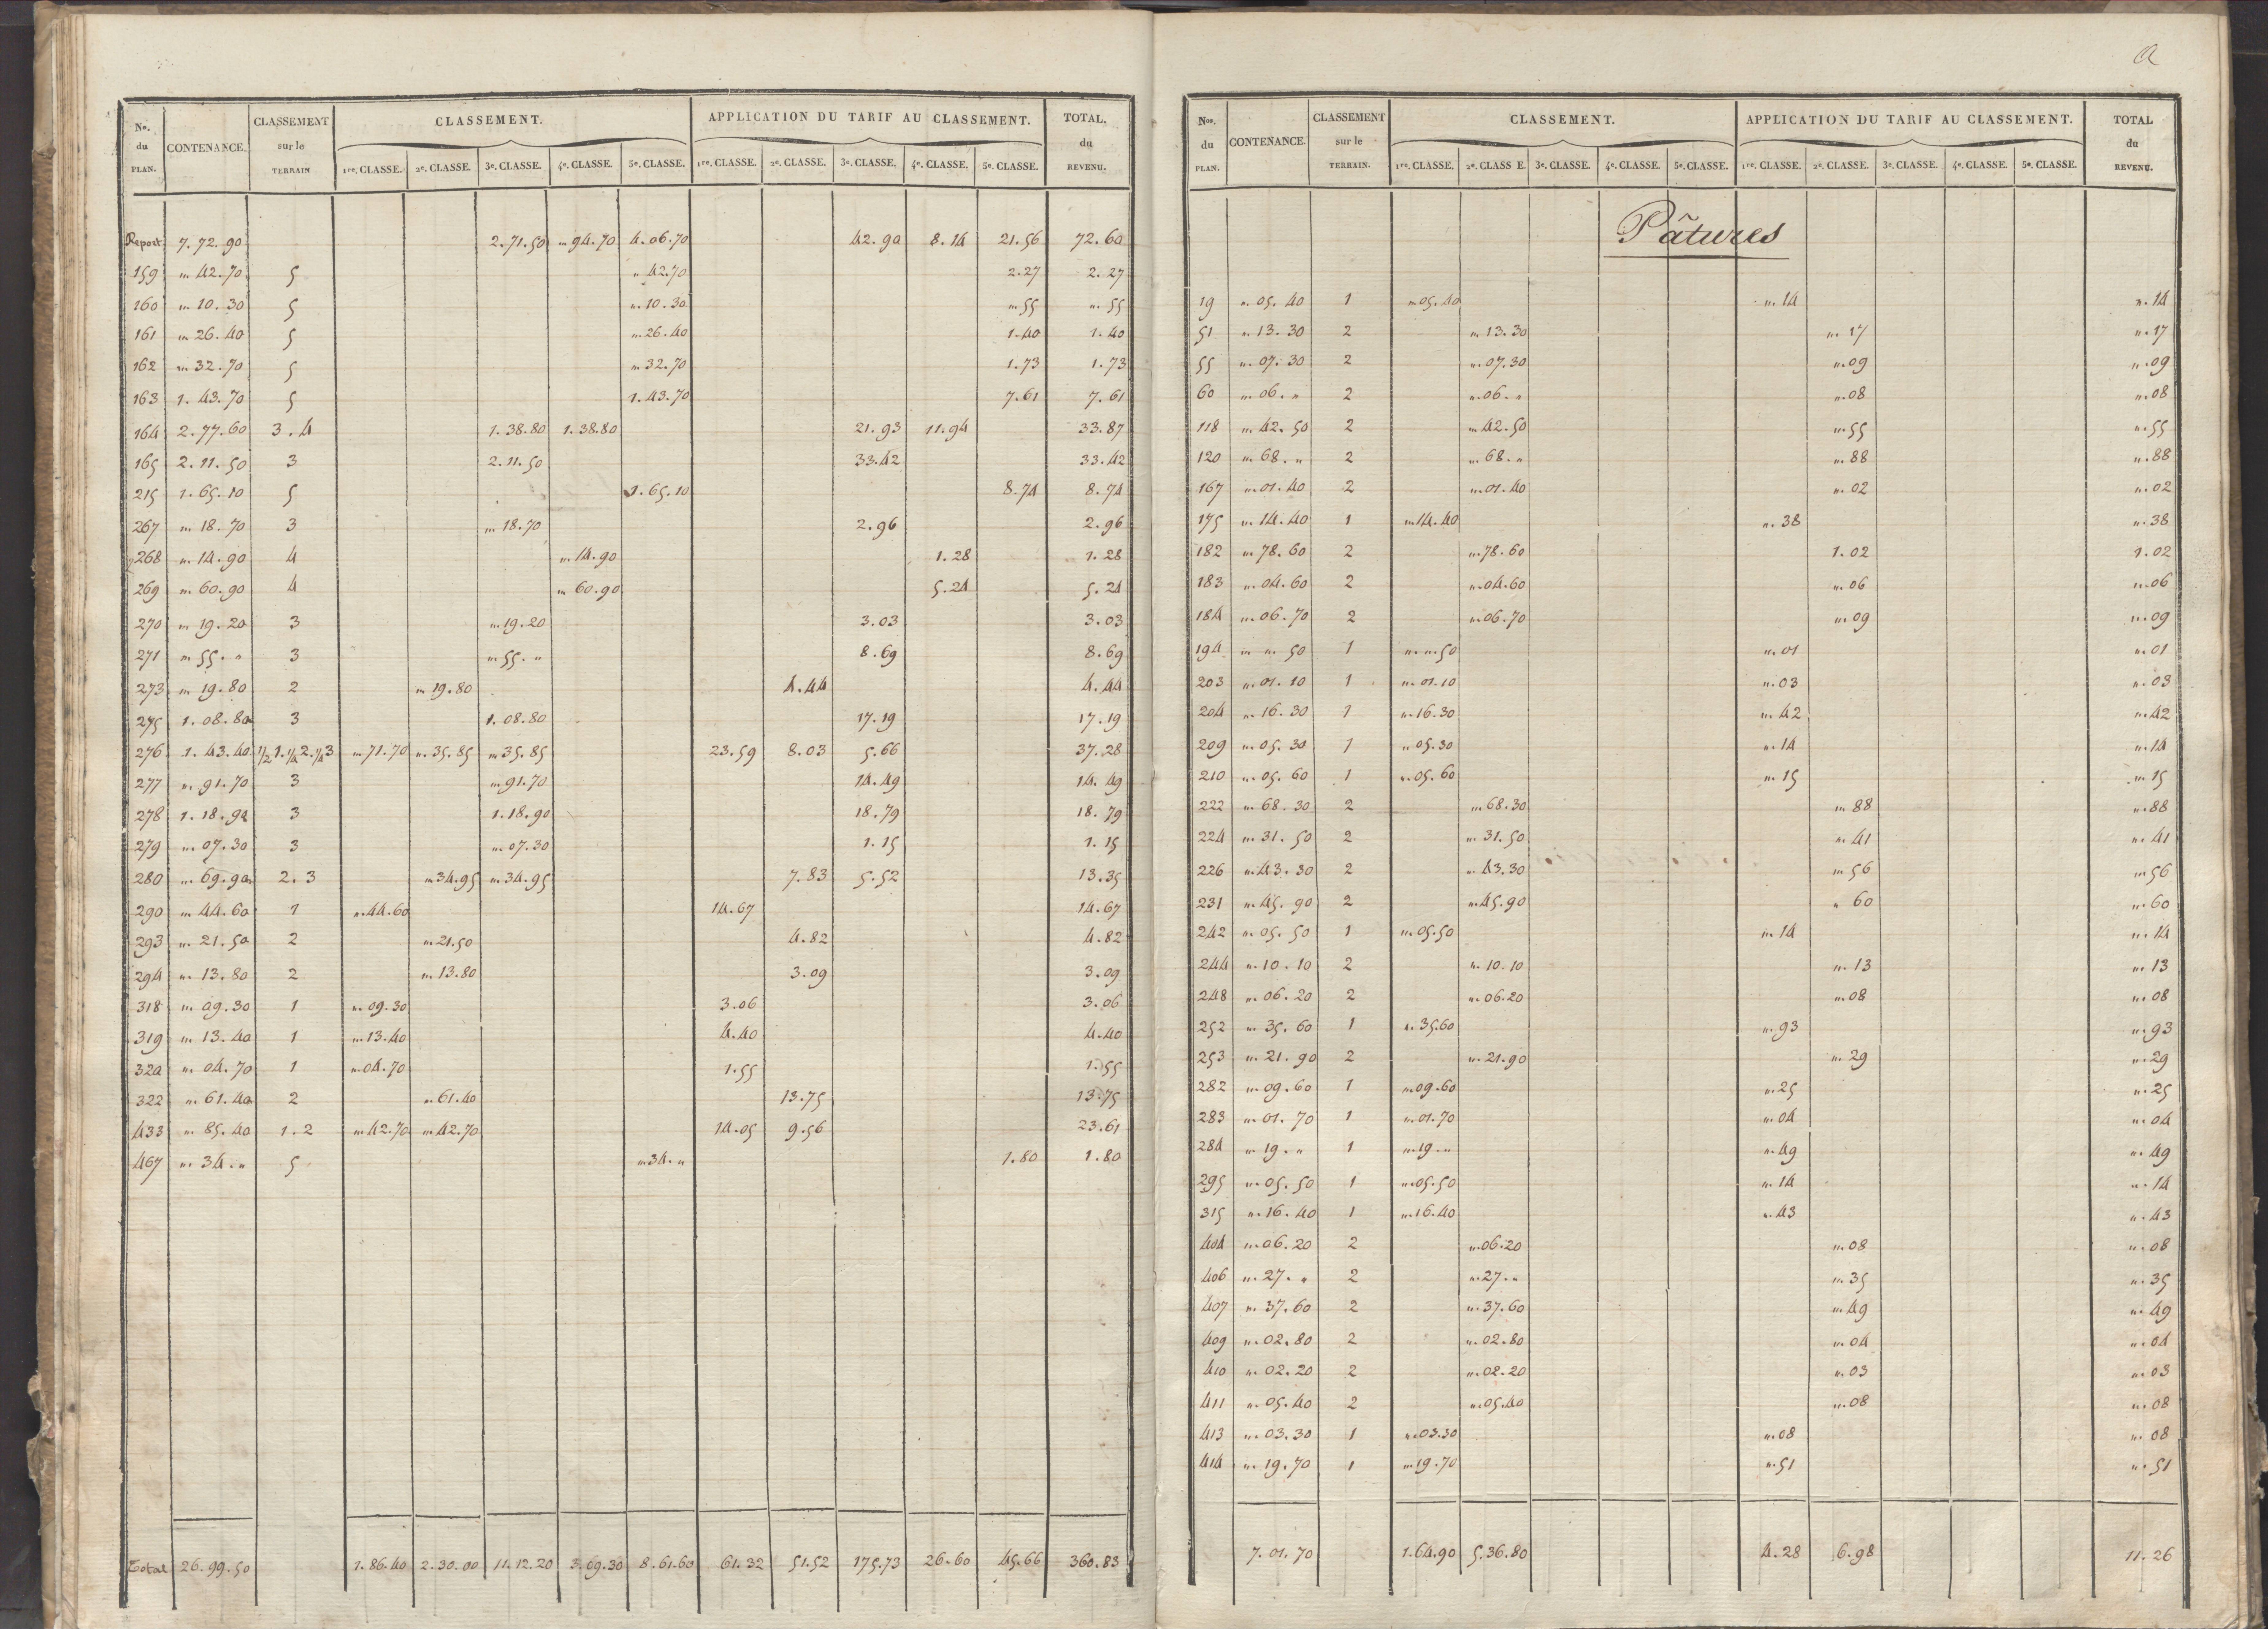 Nos. du PLAN. CONTENANCE. CLASSEMENT sur le TERRAIN CLASSEMENT. APPLICATION DU TARIF AU CLASSEMENT. TOTAL. du REVENU.
1re. CLASSE. 2e. CLASSE. 3e. CLASSE. 4e. CLASSE. 5e. CLASSE. 1re. CLASSE. 2e. CLASSE. 3e. CLASSE. 4e. CLASSE. 5e. CLASSE.
Report 7.72.90 2.71.50 „ 94.70 4.06.70 42.90 8.14 21.56 72.60
159 „ 42.70 5 „ 42.70 2.27 2.27
160 „ 10.30 5 „ 10.30 „ 55 „ 55
161 „ 26.40 5 „ 26.40 1.40 1.40
162 „ 32.70 5 „ 32.70 1.73 1.73
163 1.43.70 5 1.43.70 7.61 7.61
164 2.77.60 3.4 1.38.80 1.38.80 21.93 11.94 33.87
165 2.11.50 3 2.11.50 33.42 33.42
215 1.65.10 5 1.65.10 8.74 8.74
267 „ 18.70 3 „ 18.70 2.96 2.96
268 „ 14.90 4 „ 14.90 1.28 1.28
269 „ 60.90 4 „ 60.90 5.24 5.24
270 „ 19.20 3 „ 19.20 3.03 3.03
271 „ 55. „ 3 „ 55. „ 8.69 8.69
273 „ 19.80 2 „ 19.80 4.44 4.44
275 1.08.80 3 1.08.80 17.19 17.19
276 1.43.40 1/2 1. 1/4 2. 1/4 3 „ 71.70 „ 35.85 „ 35.85 23.59 8.03 5.66 37.28
277 „ 91.70 3 „ 91.70 14.49 14.49
278 1.18.90 3 1.18.90 18.79 18.79
279 „ 07.30 3 „ 07.30 1.15 1.15
280 „ 69.90 2.3 „ 34.95 „ 34.95 7.83 5.52 13.35
290 „ 44.60 1 „ 44.60 14.67 14.67
293 „ 21.50 2 „ 21.50 4.82 4.82
294 „ 13.80 2 „ 13.80 3.09 3.09
318 „ 09.30 1 „ 09.30 3.06 3.06
319 „ 13.40 1 „ 13.40 4.40 4.40
320 „ 04.70 1 „ 04.70 1.55 1.55
322 „ 61.40 2 „ 61.40 13.75 13.75
433 „ 85.40 1.2 „ 42.70 „ 42.70 14.05 9.56 23.61
467 „ 34. „ 5 „ 34. „ 1.80 1.80
Total 26.99.50 1.86.40 2.30.00 11.12.20 3.09.30 8.61.60 61.32 51.52 175.73 26.60 45.66 360.83
Nos. du PLAN. CONTENANCE. CLASSEMENT sur le TERRAIN. CLASSEMENT. APPLICATION DU TARIF AU CLASSEMENT. TOTAL du REVENU.
1re. CLASSE. 2e. CLASS E. 3e. CLASSE. 4e. CLASSE. 5e. CLASSE. 1re. CLASSE. 2e. CLASSE. 3e. CLASSE. 4e. CLASSE. 5e. CLASSE.
Pâtures
19 „ 05.40 1 „ 05.40 „ 14 „ 14
51 „ 13.30 2 „ 13.30 „ 17 „ 17
55 „ 07.30 2 „ 07.30 „ 09 „ 09
60 „ 06. „ 2 „ 06. „ „ 08 „ 08
118 „ 42.50 2 „ 42.50 „ 55 „ 55
120 „ 68. „ 2 „ 68. „ „ 88 „ 88
167 „ 01.40 2 „ 01.40 „ 02 „ 02
175 „ 14.40 1 „ 14.40 „ 38 „ 38
182 „ 78.60 2 „ 78.60 1.02 1.02
183 „ 04.60 2 „ 04.60 „ 06 „ 06
184 „ 06.70 2 „ 06.70 „ 09 „ 09
194 „ „ 50 1 „ „ 50 „ 01 „ 01
203 „ 01.10 1 „ 01.10 „ 03 „ 03
204 „ 16.30 1 „ 16.30 „ 42 „ 42
209 „ 05.30 1 „ 05.30 „ 14 „ 14
210 „ 05.60 1 „ 05.60 „ 15 „ 15
222 „ 68.30 2 „ 68.30 „ 88 „ 88
224 „ 31.50 2 „ 31.50 „ 41 „ 41
226 „ 43.30 2 „ 43.30 „ 56 „ 56
231 „ 45.90 2 „ 45.90 „ 60 „ 60
242 „ 05.50 1 „ 05.50 „ 14 „ 14
244 „ 10.10 2 „ 10.10 „ 13 „ 13
248 „ 06.20 2 „ 06.20 „ 08 „ 08
252 „ 35.60 1 „ 35.60 „ 93 „ 93
253 „ 21.90 2 „ 21.90 „ 29 „ 29
282 „ 09.60 1 „ 09.60 „ 25 „ 25
283 „ 01.70 1 „ 01.70 „ 04 „ 04
284 „ 19. „ 1 „ 19. „ „ 49 „ 49
295 „ 05.50 1 „ 05.50 „ 14 „ 14
315 „ 16.40 1 „ 16.40 „ 43 „ 43
404 „ 06.20 2 „ 06.20 „ 08 „ 08
406 „ 27. „ 2 „ 27. „ „ 35 „ 35
407 „ 37.60 2 „ 37.60 „ 49 „ 49
409 „ 02.80 2 „ 02.80 „ 04 „ 04
410 „ 02.20 2 „ 02.20 „ 03 „ 03
411 „ 05.40 2 „ 05.40 „ 08 „ 08
413 „ 03.30 1 „ 03.30 „ 08 „ 08
414 „ 19.70 1 „ 19.70 „ 51 „ 51
7.01.70 1.64.90 5.36.80 4.28 6.98 11.26